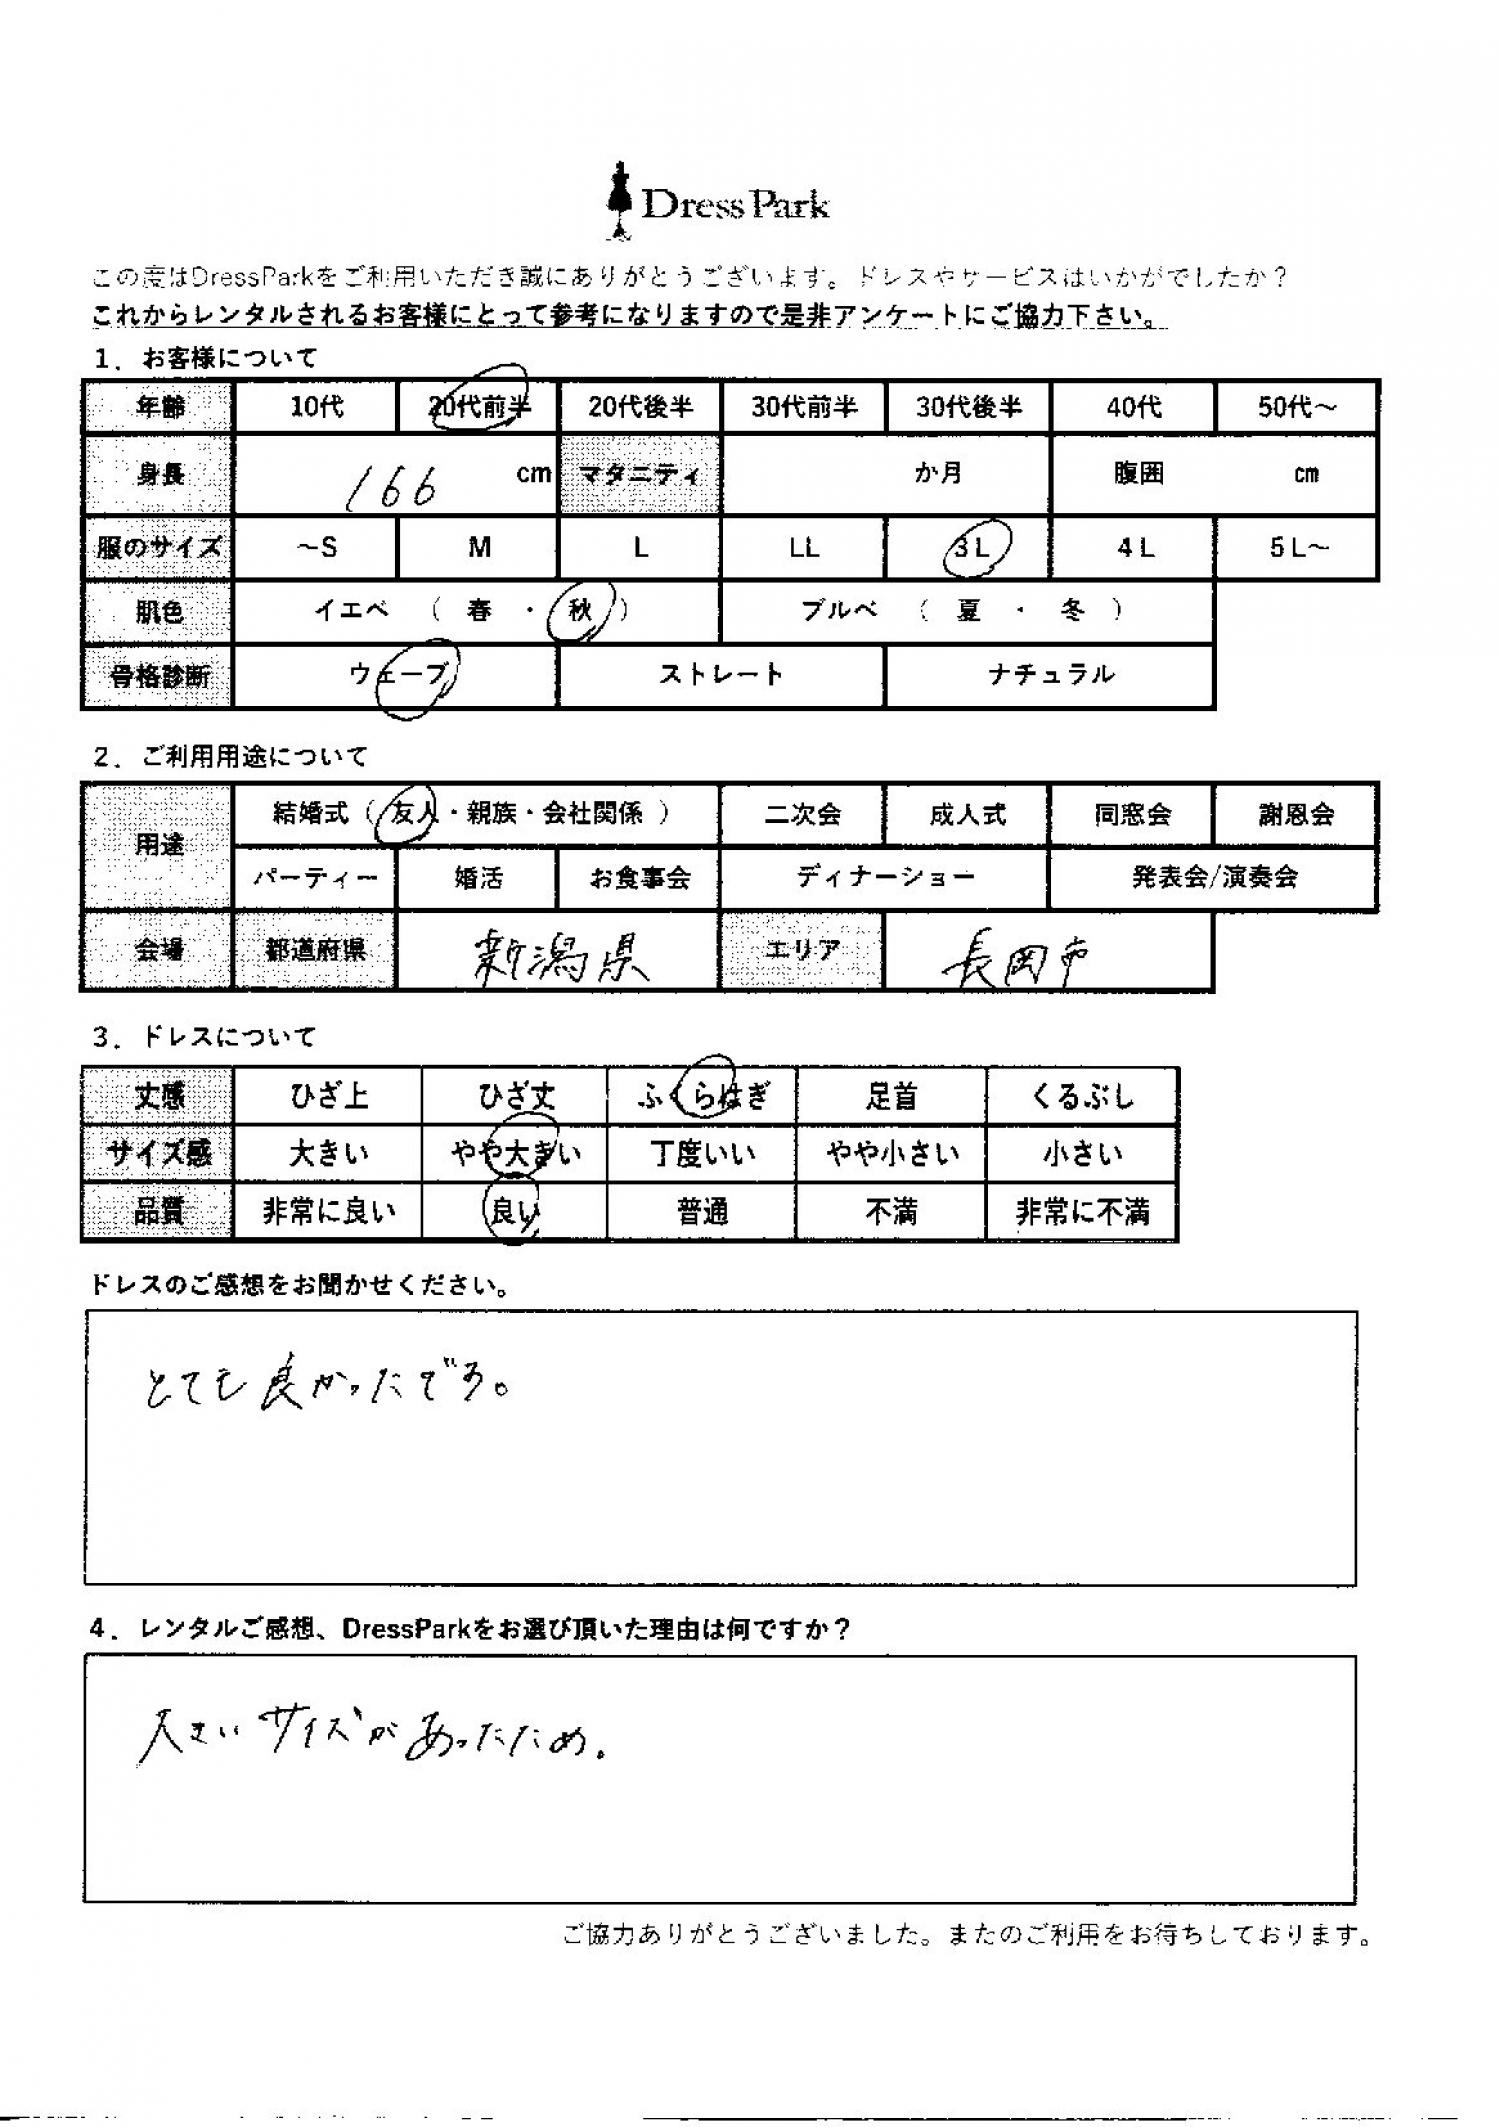 DressPark
この度はDressParkをご利用いただき誠にありがとうございます。ドレスやサービスはいかがでしたか？
これからレンタルされるお客様にとって参考になりますので是非アンケートにご協力下さい。
1．お客様について
年齢 10代 20代前半 20代後半 30代前半 30代後半 40代 50代～
身長 166 cm マタニティ か月 腹囲 cm
服のサイズ ～S M L LL 3L 4L 5L～
肌色 イエベ （ 春 ・ 秋 ） ブルベ （ 夏 ・ 冬 ）
骨格診断 ウェーブ ストレート ナチュラル
2．ご利用用途について
用途 結婚式（ 友人・親族・会社関係 ） 二次会 成人式 同窓会 謝恩会
パーティー 婚活 お食事会 ディナーショー 発表会/演奏会
会場 都道府県 新潟県 エリア 長岡市
3．ドレスについて
丈感 ひざ上 ひざ丈 ふくらはぎ 足首 くるぶし
サイズ感 大きい やや大きい 丁度いい やや小さい 小さい
品質 非常に良い 良い 普通 不満 非常に不満
ドレスのご感想をお聞かせください。
とても良かったです。
4．レンタルご感想、DressParkをお選び頂いた理由は何ですか？
大きいサイズがあったため。
ご協力ありがとうございました。またのご利用をお待ちしております。